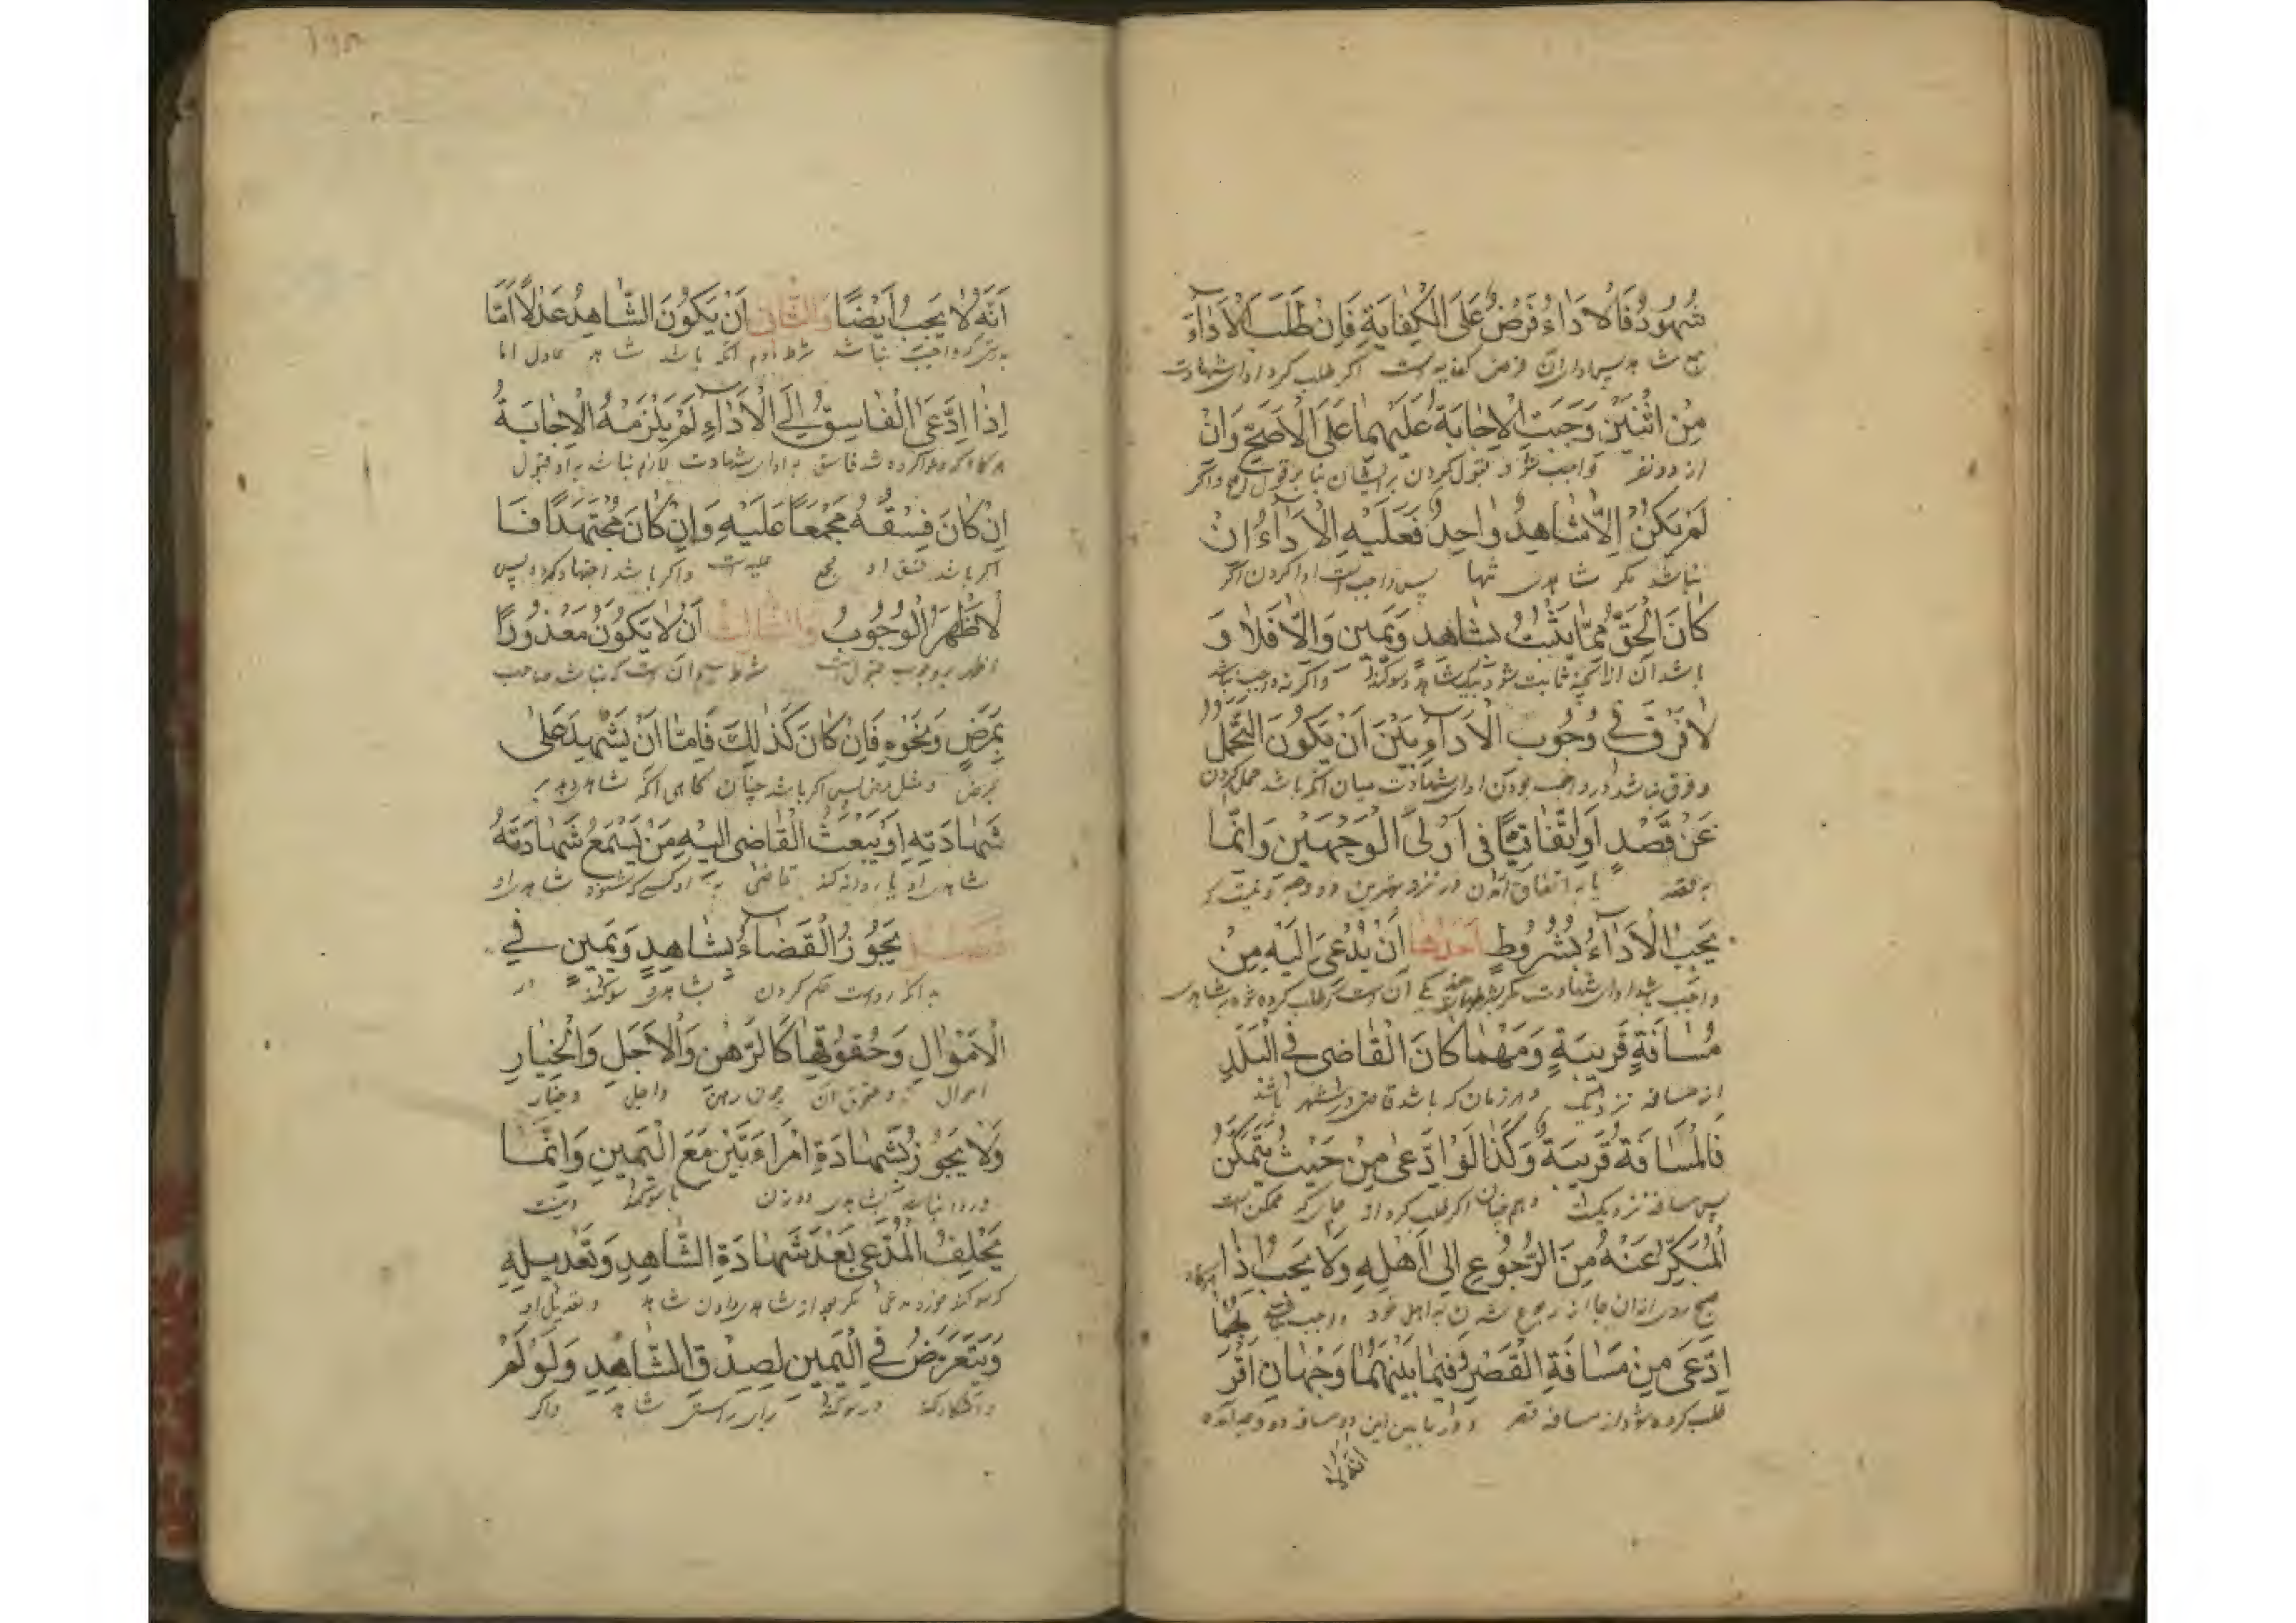 شُهُودٌ فَالْاَدَاءُ فَرْضٌ عَلَى الْكِفَايَةِ فَاِنْ طَلَبَ الْاَدَاءَ
جمع شاهد پس ادای آن فرض کفایه است اگر طلب کرد ادای شهادت
مِنْ اثْنَيْنِ وَجَبَتِ الْاِجَابَةُ عَلَيْهِمَا عَلَى الْاَصَحِّ وَاِنْ
از دو نفر واجب شود قبول کردن بر ایشان بنا بر قول اصح واگر
لَمْ يَكُنْ اِلَّا شَاهِدٌ وَاحِدٌ فَعَلَيْهِ الْاَدَاءُ اِنْ
نباشد مکر شاهدی تنها پس واجب است ادا کردن اگر
كَانَ الْحَقُّ مِمَّا يَثْبُتُ بِشَاهِدٍ وَيَمِينٍ وَاِلَّا فَلَا وَ
باشد آن از آنچه ثابت شود بیک شاهد وسوکند واگر نه واجب نباشد
لَا فَرْقَ فِي وُجُوبِ الْاَدَاءِ بَيْنَ اَنْ يَكُونَ التَّحَمُّلُ
وفرق نباشد در واجب بودن ادای شهادت میان آنکه باشد حمل کردن
عَنْ قَصْدٍ اَوِ اتِّفَاقِيًّا فِي اَوْلَى الْوَجْهَيْنِ وَاِنَّمَا
به قصد یا به اتفاق در نزد بهترین دو وجه
يَجِبُ الْاَدَاءُ بِشُرُوطٍ اَحَدُهَا اَنْ يُدْعَى اِلَيْهِ مِنْ
واجب باشد ادای شهادت مکر یکی آن است که طلب کرده شود
مَسَافَةٍ قَرِيبَةٍ وَمَهْمَا كَانَ الْقَاضِي فِي الْبَلَدِ
از مسافه نزدیک وهر زمان که باشد قاضی در شهر باشد
فَالْمَسَافَةُ قَرِيبَةٌ وَكَذَا لَوْ اِدَّعَى مِنْ حَيْثُ يَتَمَكَّنُ
پس مسافه نزدیکست وهم چنان اگر طلب کرد از جای که ممکن است
الْمُبَكِّرُ عَنْهُ مِنَ الرُّجُوعِ اِلَى اَهْلِهِ وَلَا يَجِبُ اِذَا
صبح روی از آن جا از رجوع شدن به اهل خود واجب نباشد
اِدَّعَى مِنْ مَسَافَةِ الْقَصْرِ وَفِيمَا بَيْنَهُمَا وَجْهَانِ اَقْرَ
طلب کرده شود از مسافه قصر ودر ما بین این دو مسافه دو وجه آمده
انه لا
۱۹۵
اَنَّهُ لَا يَجِبُ اَيْضًا وَالثَّانِي اَنْ يَكُونَ الشَّاهِدُ عَدْلًا اَمَّا
واجب نباشد شرط دوم آنکه باشد شاهد عادل اما
اِذَا اِدَّعَى الْفَاسِقُ اِلَى الْاَدَاءِ لَمْ يَلْزَمْهُ الْاِجَابَةُ
هرکاه که دعوا کرده شد فاسق به ادای شهادت لازم نباشد به او قبول
اِنْ كَانَ فِسْقُهُ مُجْمَعًا عَلَيْهِ وَاِنْ كَانَ مُجْتَهَدًا فَا
اگر باشد فسق او مجمع علیه است واگر باشد اجتهاد کرده پس
لَاظْهَرُ الْوُجُوبُ وَالثَّالِثُ اَنْ لَا يَكُونَ مَعْذُورًا
اظهر بر وجوب قبول است شرط سیم آن است که نباشد صاحب
بِمَرَضٍ وَنَحْوِهِ فَاِنْ كَانَ كَذَلِكَ فَاِمَّا اَنْ يَشْهِدَ عَلَى
بمرض ومثل مرض پس اگر باشد چنان کاهی آنکه شاهد دهد بر
شَهَادَتِهِ اَوْ يَبْعَثَ الْقَاضِي اِلَيْهِ مَنْ يَسْتَمِعُ شَهَادَتَهُ
شاهدی او یا روانه کند قاضی به او کسی که بشنود شاهدی او
فَصْلٌ يَجُوزُ الْقَضَاءُ بِشَاهِدٍ وَيَمِينٍ فِي
به آنکه رواست حکم کردن بشاهدی وسوکند در
الْاَمْوَالِ وَحُقُوقِهَا كَالرَّهْنِ وَالْاَجَلِ وَالْخِيَارِ
اموال وحقوق آن چون رهن واجل وخیار
وَلَا يَجُوزُ بِشَهَادَةِ امْرَاَتَيْنِ مَعَ الْيَمِينِ وَاِنَّمَا
وروا نباشد بشاهدی دو زن با سوکند ونیست
يَحْلِفُ الْمُدَّعِي بَعْدَ شَهَادَةِ الشَّاهِدِ وَتَعْدِيلِهِ
که سوکند خورد مدعی مکر بعد از شاهدی دادن شاهد وتعدیل او
وَيَتَعَرَّضُ فِي الْيَمِينِ لِصِدْقِ الشَّاهِدِ وَلَوْ لَمْ
واشکار کند در سوکند برای راستی شاهد واگر